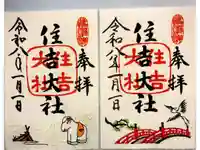 奉拝
住吉大社
令和八年一月一日
奉拝
住吉大社
令和八年一月一日